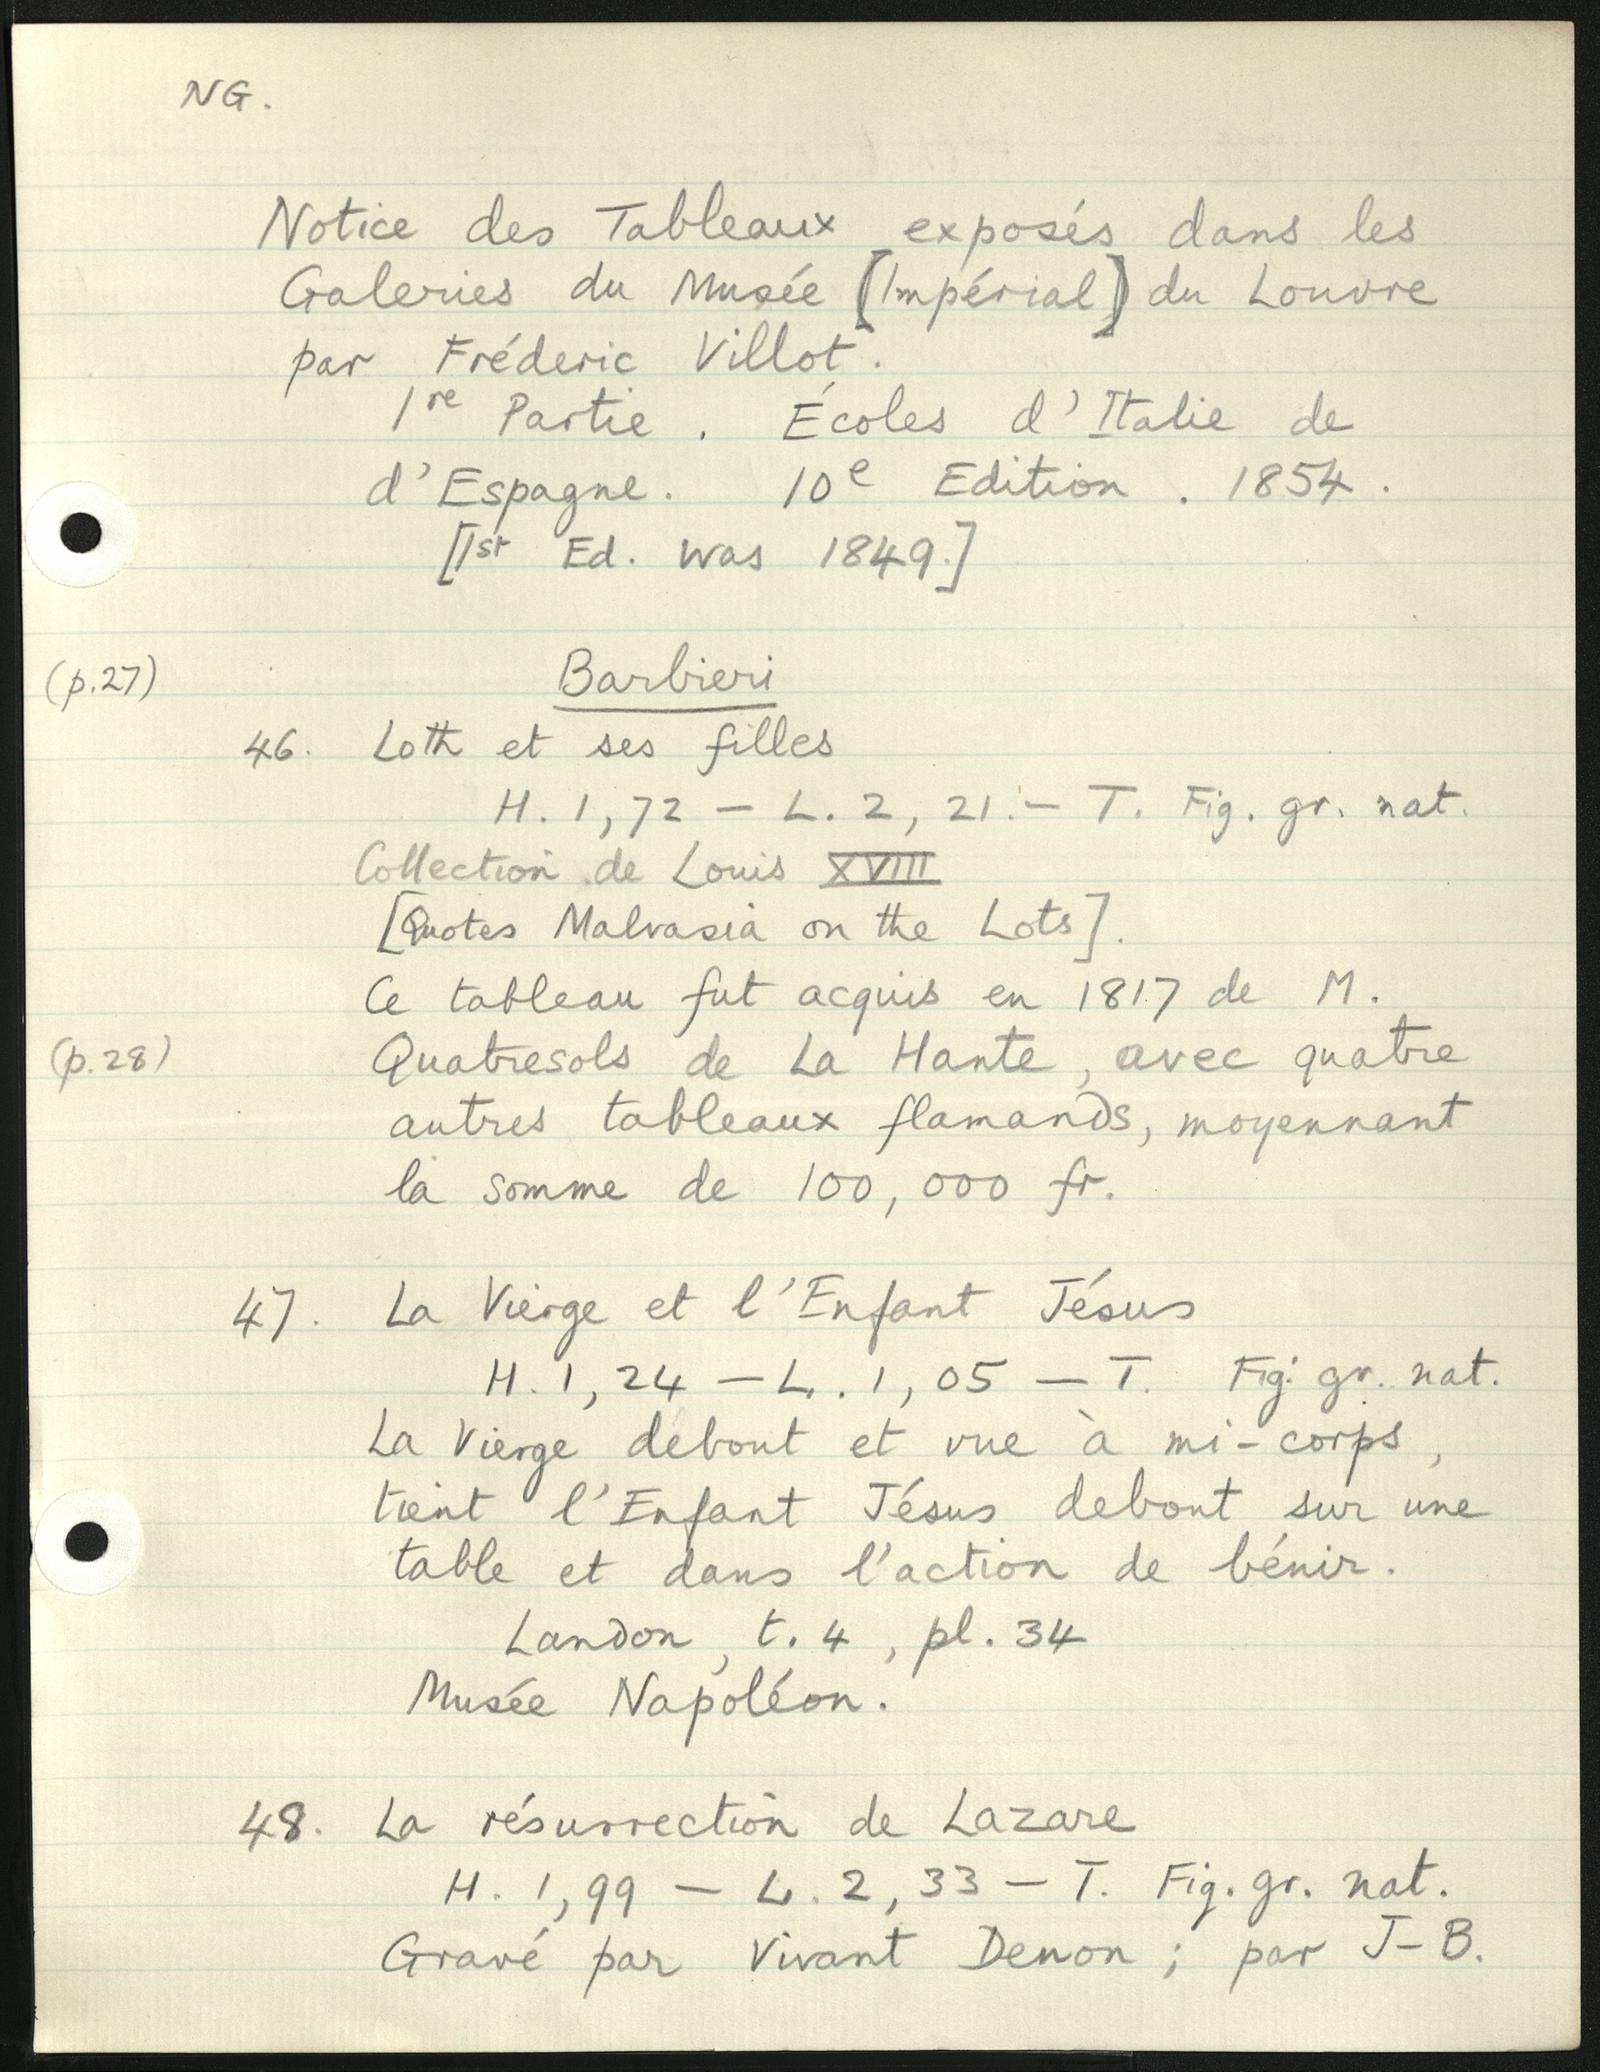 NG.
Notice des Tableaux exposés dans les
Galeries du Musée [Impérial] du Louvre
par Fréderic Villot.
1re Partie. Écoles d'Italie de
d'Espagne. 10e Edition. 1854.
[1st Ed. was 1849.]
(p.27) Barbieri
46. Loth et ses filles
H. 1,72 — L. 2,21. — T. Fig. gr. nat.
Collection de Louis XVIII
[Quotes Malvasia on the Lots].
Ce tableau fut acquis en 1817 de M.
(p.28) Quatresols de La Hante, avec quatre
autres tableaux flamands, moyennant
la somme de 100,000 fr.
47. La Vierge et l'Enfant Jésus
H. 1,24 — L. 1,05 — T. Fig. gr. nat.
La Vierge debout et vue à mi-corps,
tient l'Enfant Jésus debout sur une
table et dans l'action de bénir.
Landon, t. 4, pl. 34
Musée Napoléon.
48. La résurrection de Lazare
H. 1,99 — L. 2,33 — T. Fig. gr. nat.
Gravé par Vivant Denon; par J-B.